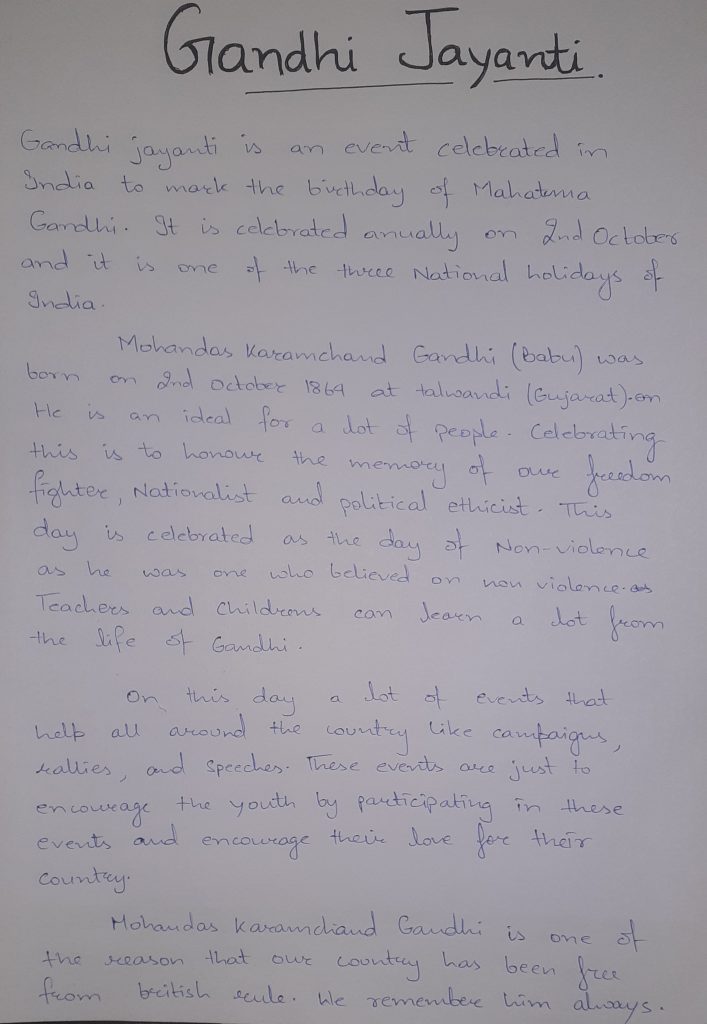 Gandhi Jayanti.
Gandhi jayanti is an event celebrated in
India to mark the birthday of Mahatma
Gandhi. It is celebrated anually on 2nd October
and it is one of the three National holidays of
India.
Mohandas Karamchand Gandhi (Babu) was
born on 2nd October 1869 at talwandi (Gujarat).on
He is an ideal for a lot of people. Celebrating
this is to honour the memory of our freedom
fighter, Nationalist and political ethicist. This
day is celebrated as the day of Non-violence
as he was one who believed on non violence.as
Teachers and childrens can learn a lot from
the life of Gandhi.
On this day a lot of events that
help all around the country like campaigns,
rallies, and speeches. These events are just to
encourage the youth by participating in these
events and encourage their love for their
country.
Mohandas Karamchand Gandhi is one of
the reason that our country has been free
from british rule. We remember him always.